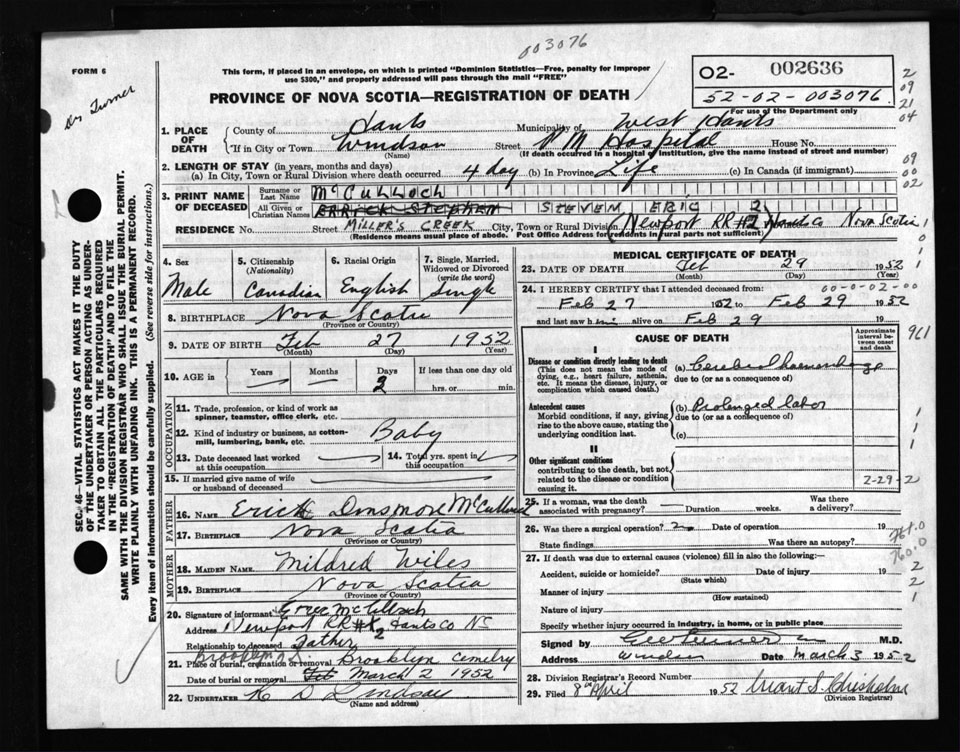 003076
FORM 6
This form, if placed in an envelope, on which is printed "Dominion Statistics—Free, penalty for improper
use $300," and properly addressed will pass through the mail "FREE"
PROVINCE OF NOVA SCOTIA—REGISTRATION OF DEATH
O2- 002636
52-02-003076
For use of the Department only
2
09
21
04
Dr Turner
1. PLACE OF DEATH
County of Hants Municipality of West Hants
If in City or Town Windsor Street Hospital House No.
(Name) (If death occurred in a hospital or institution, give the name instead of street and number)
2. LENGTH OF STAY (in years, months and days)
(a) In City, Town or Rural Division where death occurred 4 day (b) In Province Life (c) In Canada (if immigrant)
09
00
02
3. PRINT NAME OF DECEASED
Surname or Last Name McCULLOCH
All Given or Christian Names ERRICK STEPHEN STEVEN ERIC 2
RESIDENCE No. Street MILLER'S CREEK City, Town or Rural Division (Newport RR#2) Hants Co Nova Scotia
(Residence means usual place of abode. Post Office Address for residents in rural parts not sufficient)
4. Sex Male
5. Citizenship (Nationality) Canadian
6. Racial Origin English
7. Single, Married, Widowed or Divorced (write the word) Single
8. BIRTHPLACE Nova Scotia
(Province or Country)
9. DATE OF BIRTH Feb 27 1952
(Month) (Day) (Year)
10. AGE in Years Months Days 3 If less than one day hrs. or min.
OCCUPATION
11. Trade, profession, or kind of work as spinner, teamster, office clerk, etc.
12. Kind of industry or business, as cotton-mill, lumbering, bank, etc. Baby
13. Date deceased last worked at this occupation
14. Total yrs. spent in this occupation
15. If married give name of wife or husband of deceased
FATHER
16. NAME Erick Dinsmore McCulloch
17. BIRTHPLACE Nova Scotia
(Province or Country)
MOTHER
18. MAIDEN NAME Mildred Wiles
19. BIRTHPLACE Nova Scotia
(Province or Country)
20. Signature of informant McCulloch
Address Newport RR# 2 Hants Co NS
Relationship to deceased Father
Brooklyn
21. Place of burial, cremation or removal Brooklyn Cemetry
Date of burial or removal Feb March 2 1952
22. UNDERTAKER K D Lindsay
(Name and address)
MEDICAL CERTIFICATE OF DEATH
23. DATE OF DEATH Feb 29 1952
(Month) (Day) (Year)
00-0-02-00
24. I HEREBY CERTIFY that I attended deceased from:
Feb 27 1952 to Feb 29 1952
and last saw him alive on Feb 29
CAUSE OF DEATH
Approximate interval between onset and death
961
I
Disease or condition directly leading to death (a) Cerebral haemorrhage
(This does not mean the mode of dying, e.g., heart failure, asthenia, etc. It means the disease, injury, or complication which caused death.)
due to (or as a consequence of)
Antecedent causes (b) Prolonged labor
Morbid conditions, if any, giving rise to the above cause, stating the underlying condition last.
due to (or as a consequence of)
(c)
II
Other significant conditions
contributing to the death, but not related to the disease or condition causing it.
2-29-2
25. If a woman, was the death associated with pregnancy? Duration weeks. Was there a delivery?
26. Was there a surgical operation? Date of operation 19
State findings Was there an autopsy?
761.0
760.0
27. If death due to external causes (violence) fill in also the following:—
Accident, suicide or homicide? Date of injury 19
(State which)
Manner of injury
(How sustained)
Nature of injury
Specify whether injury occurred in industry, in home, or in public place
Signed by M.D.
Address Windsor Date March 3 1952
28. Division Registrar's Record Number
29. Filed 8th April 1952 Chisholm
(Division Registrar)
SEC. 46—VITAL STATISTICS ACT MAKES IT THE DUTY
OF THE UNDERTAKER OR PERSON ACTING AS UNDER-
TAKER TO OBTAIN ALL THE PARTICULARS REQUIRED
IN THE "REGISTRATION OF DEATH" AND TO FILE THE
SAME WITH THE DIVISION REGISTRAR WHO SHALL ISSUE THE BURIAL PERMIT.
WRITE PLAINLY WITH UNFADING INK. THIS IS A PERMANENT RECORD.
Every item of information should be carefully supplied. (See reverse side for instructions.)